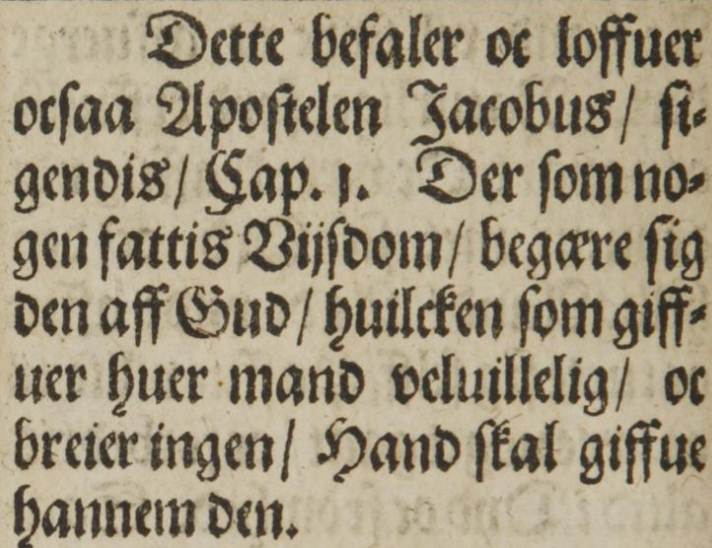 Dette befaler oc loffuer
ocsaa Apostelen Jacobus/ si-
gendis/ Cap. 1. Der som no-
gen fattis Vijsdom/ begære sig
den aff Gud/ huilcken som giff-
uer huer mand veluillelig/ oc
breier ingen/ Hand skal giffue
hannem den.